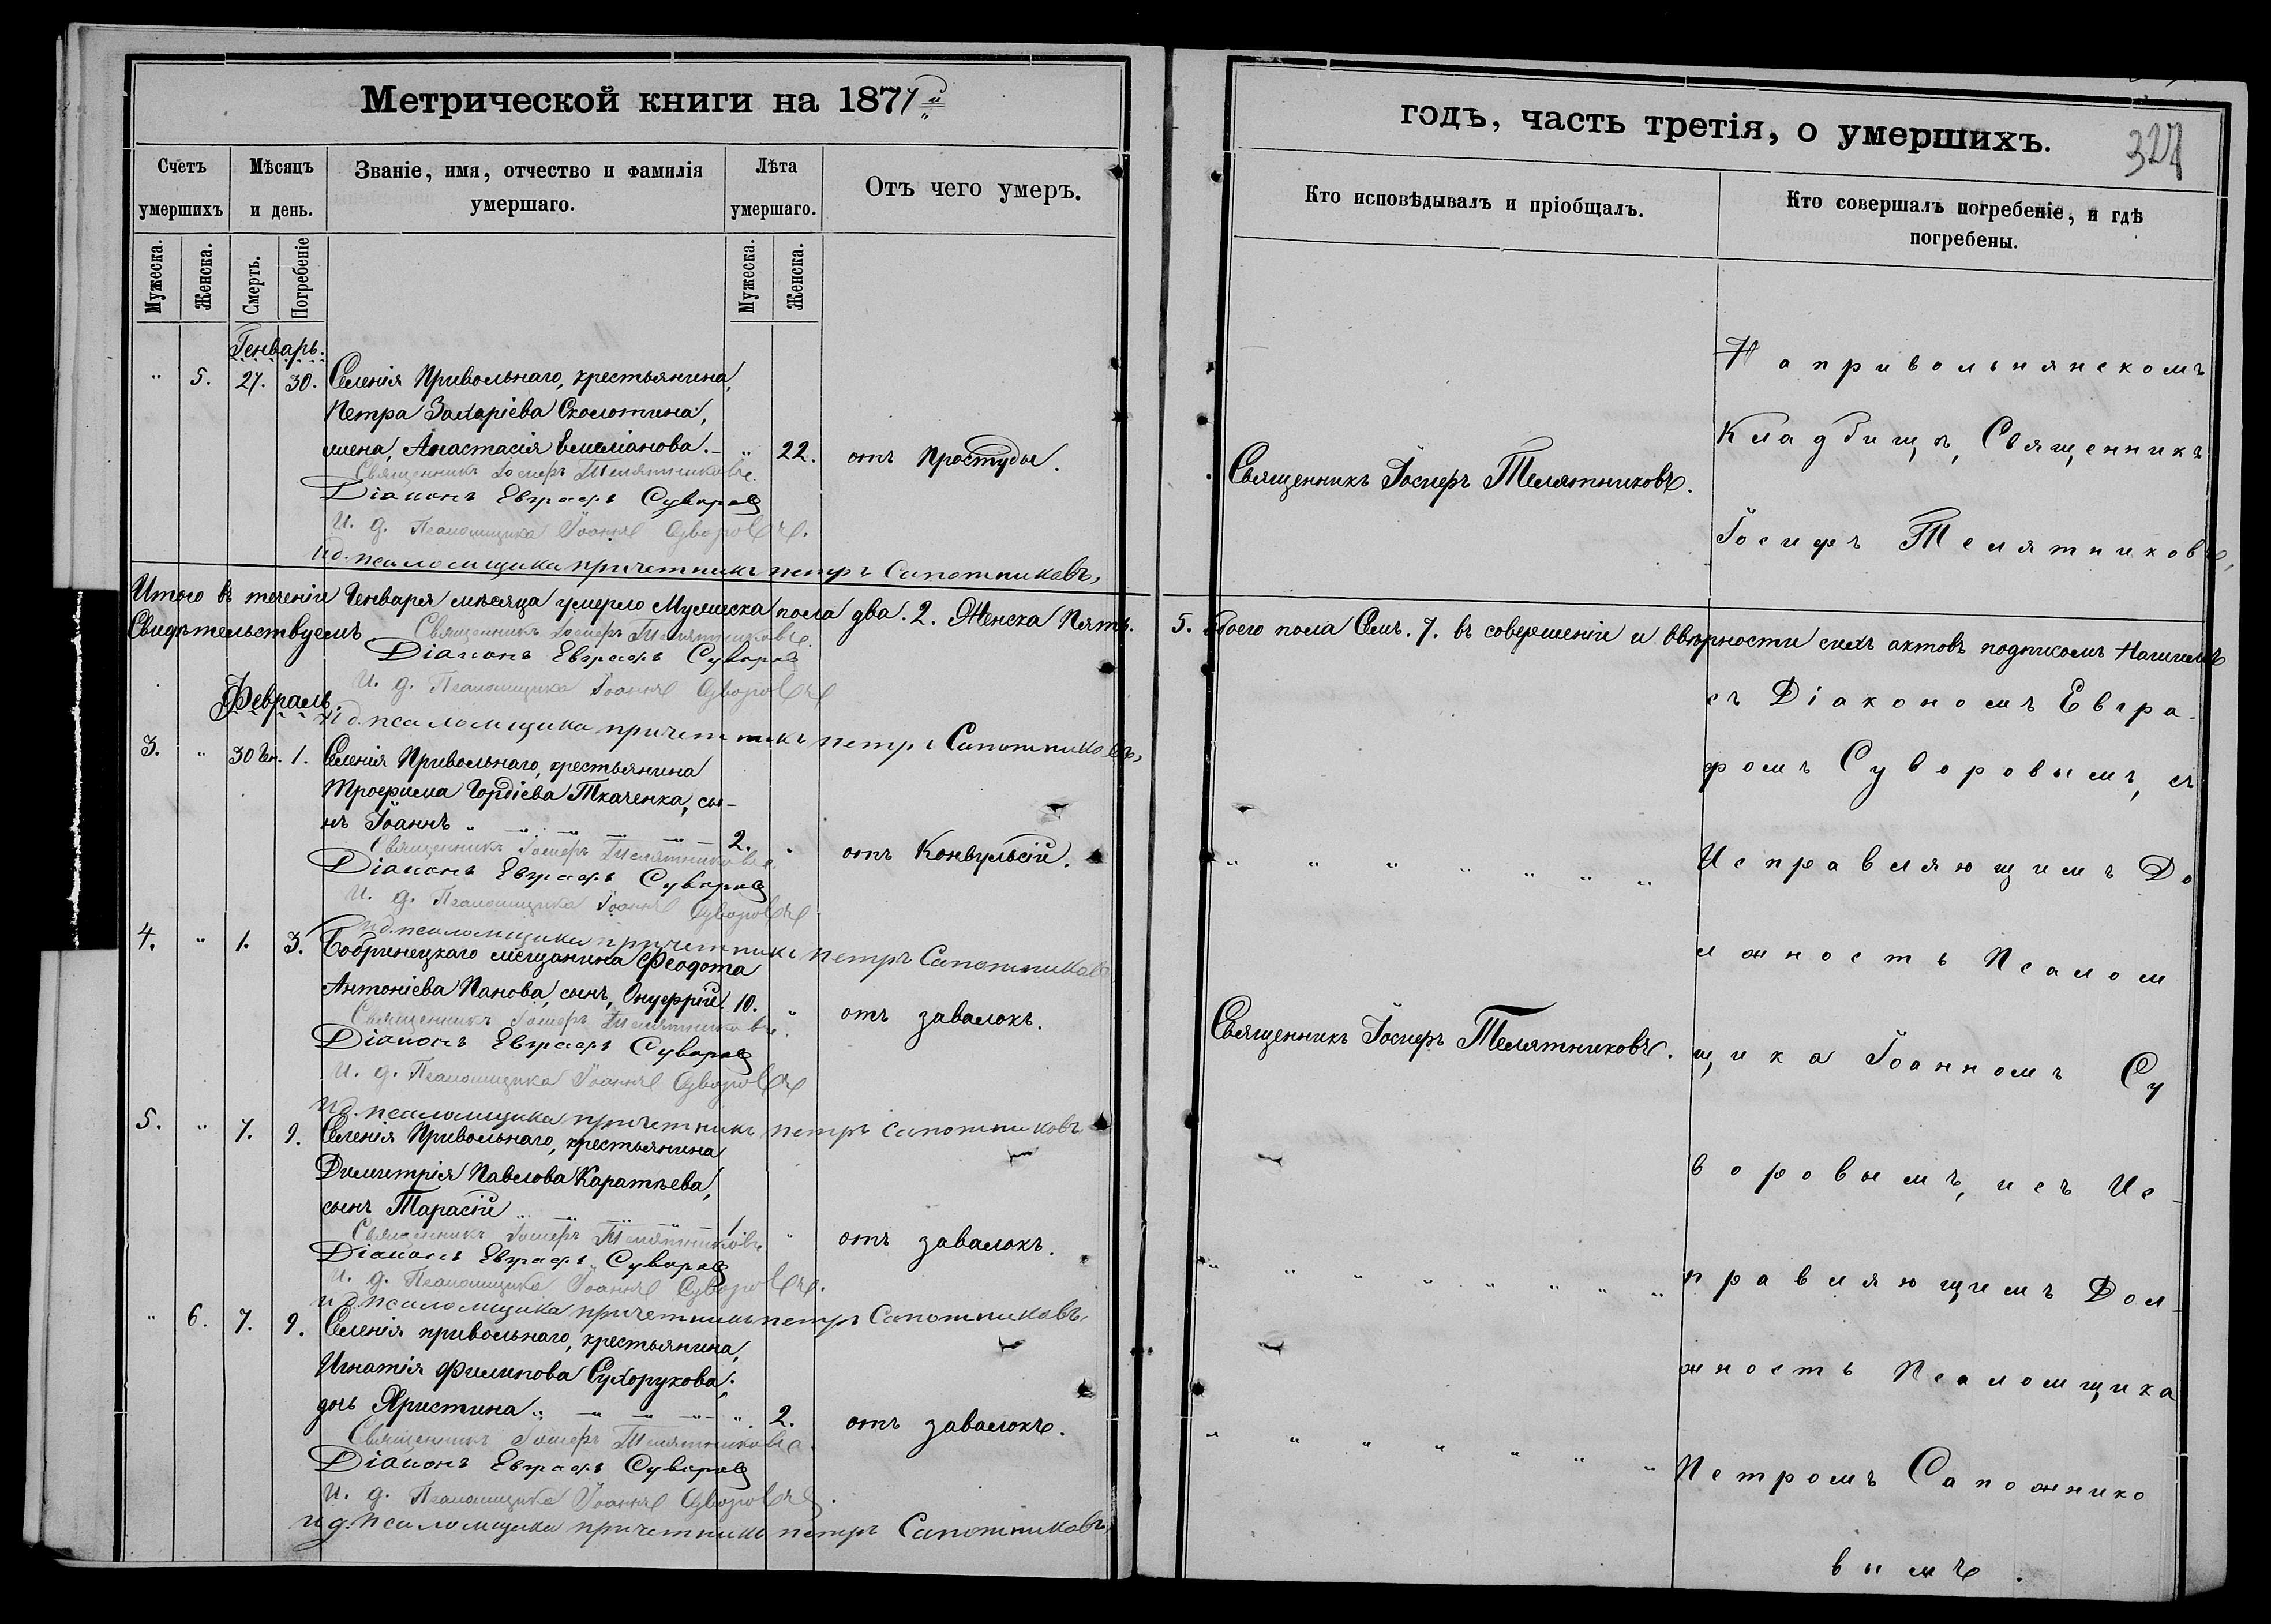 Метрической книги на 1871й
Счетъ умершихъ
Мѣсяцъ и день.
Званіе, имя, отчество и фамилія умершаго.
Лѣта умершаго.
Отъ чего умеръ.
Мужеска.
Женска.
Смерть.
Погребеніе
Мужеска.
Женска.
Генварь.
" 5. 27. 30. Селенія Привольнаго, крестьянина,
Петра Захаріева Сколотина,
жена, Анастасія Емеліанова. - " 22. отъ простуды.
Священникъ Іосифъ Телятниковъ.
Діаконъ Евграфъ Суворовъ
И. д. Псаломщика Іоаннъ Суворовъ.
ид. псаломщика причетникъ петръ Сапожниковъ,
Итого въ теченіи Генваря мѣсяца умерло Мужеска пола два. 2. Женска Пять.
Свидѣтельствуемъ Священникъ Іосифъ Телятниковъ.
Діаконъ Евграфъ Суворовъ
И. д. Псаломщика Іоаннъ Суворовъ
Февраль.
ид. псаломщика причетникъ петръ Сапожниковъ,
3. " 30 Ген. 1. Селенія Привольнаго, крестьянина
Трофима Гордіева Ткаченка, сы-
нъ Іоаннъ " 2. " отъ Конвульсіи.
Священникъ Іосифъ Телятниковъ.
Діаконъ Евграфъ Суворовъ
И. д. Псаломщика Іоаннъ Суворовъ
ид. псаломщика причетникъ петръ Сапожниковъ
4. " 1. 3. Бобринецкаго мѣщанина Феодота
Антоніева Панова, сынъ, Онуфрій. 10. " отъ завалокъ.
Священникъ Іосифъ Телятниковъ.
Діаконъ Евграфъ Суворовъ
И. д. Псаломщика Іоаннъ Суворовъ
ид. псаломщика причетникъ петръ сапожниковъ
5. " 7. 9. Селенія Привольнаго, крестьянина
Димитрія Павлова Каратѣева,
сынъ Тарасій 1. " отъ завалокъ.
Священникъ Іосифъ Телятниковъ
Діаконъ Евграфъ Суворовъ
И. д. Псаломщика Іоаннъ Суворовъ.
ид. псаломщика причетникъ петръ Сапожниковъ,
" 6. 7. 9. Селенія привольнаго, крестьянина,
Игнатія Филипова Сухорукова,
дочь Христина " 2. отъ завалокъ.
Священникъ Іосифъ Телятниковъ.
Діаконъ Евграфъ Суворовъ
И. д. Псаломщика Іоаннъ Суворовъ.
ид. псаломщика причетникъ петръ Сапожниковъ,
годъ, часть третія, о умершихъ.
Кто исповѣдывалъ и пріобщалъ.
Кто совершалъ погребеніе, и гдѣ погребены.
На привольнянскомъ
Кладбищѣ, Священникъ
Священникъ Іосифъ Телятниковъ.
Іосифъ Телятниковъ,
5. обоего пола Семь. 7. въ совершеніи и ввѣрности сихъ актовъ подпискомъ Нашимъ
съ Діакономъ Евгра-
фомъ Суворовымъ, съ
" " " " " " " Исправляющимъ До
лжность Псалом
Священникъ Іосифъ Телятниковъ.
щика Іоанномъ Су
воровымъ, и съ Ис-
" " " " " " " правляющимъ Дол-
жность Псаломщика
" " " " " " " Петромъ Сапожнико
вымъ.